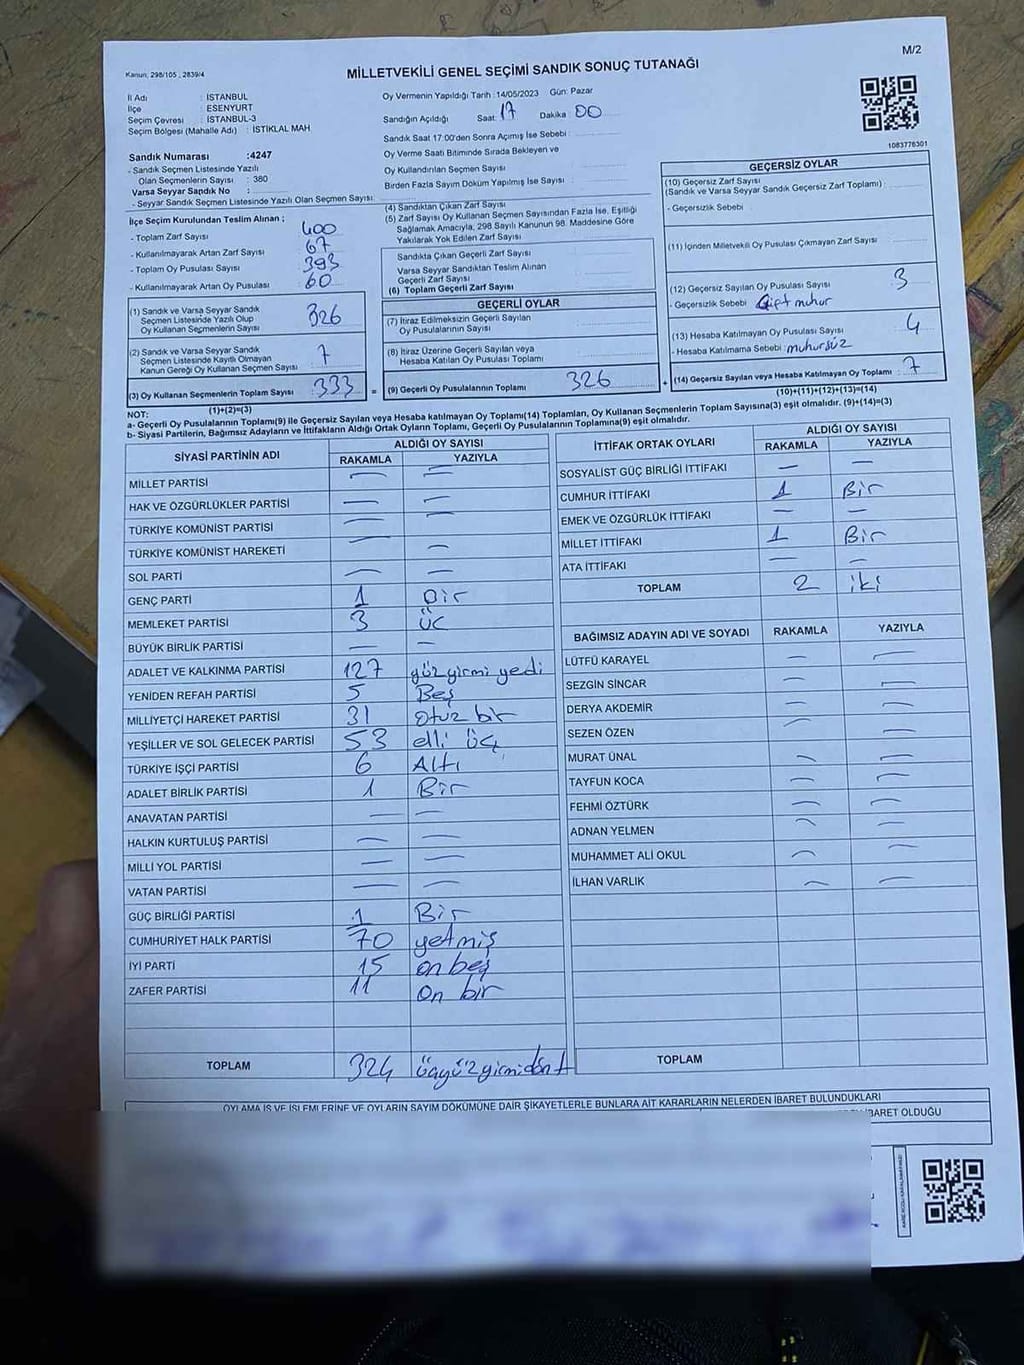 M/2
Kanun; 298/105 , 2839/4
MİLLETVEKİLİ GENEL SEÇİMİ SANDIK SONUÇ TUTANAĞI
İl Adı : İSTANBUL
İlçe : ESENYURT
Seçim Çevresi : İSTANBUL-3
Seçim Bölgesi (Mahalle Adı) : İSTİKLAL MAH
Oy Vermenin Yapıldığı Tarih : 14/05/2023 Gün: Pazar
Sandığın Açıldığı Saat: 17 Dakika : 00
Sandık Saat 17:00'den Sonra Açımış İse Sebebi :
Oy Verme Saati Bitiminde Sırada Bekleyen ve
Oy Kullandırılan Seçmen Sayısı :
Birden Fazla Sayım Döküm Yapılmış İse Sayısı :
1083776301
Sandık Numarası :4247
- Sandık Seçmen Listesinde Yazılı
Olan Seçmenlerin Sayısı : 380
Varsa Seyyar Sandık No :
- Seyyar Sandık Seçmen Listesinde Yazılı Olan Seçmen Sayısı:
İlçe Seçim Kurulundan Teslim Alınan ;
- Toplam Zarf Sayısı 400
- Kullanılmayarak Artan Zarf Sayısı 67
- Toplam Oy Pusulası Sayısı 393
- Kullanılmayarak Artan Oy Pusulası 60
(1) Sandık ve Varsa Seyyar Sandık
Seçmen Listesinde Yazılı Olup
Oy Kullanan Seçmenlerin Sayısı 326
(2) Sandık ve Varsa Seyyar Sandık
Seçmen Listesinde Kayıtlı Olmayan
Kanun Gereği Oy Kullanan Seçmen Sayısı 7
(3) Oy Kullanan Seçmenlerin Toplam Sayısı 333 =
(1)+(2)=(3)
(4) Sandıktan Çıkan Zarf Sayısı
(5) Zarf Sayısı Oy Kullanan Seçmen Sayısından Fazla İse, Eşitliği
Sağlamak Amacıyla, 298 Sayılı Kanunun 98. Maddesine Göre
Yakılarak Yok Edilen Zarf Sayısı
Sandıkta Çıkan Geçerli Zarf Sayısı
Varsa Seyyar Sandıktan Teslim Alınan
Geçerli Zarf Sayısı
(6) Toplam Geçerli Zarf Sayısı
GEÇERLİ OYLAR
(7) İtiraz Edilmeksizin Geçerli Sayılan
Oy Pusulalarının Sayısı
(8) İtiraz Üzerine Geçerli Sayılan veya
Hesaba Katılan Oy Pusulası Toplamı
(9) Geçerli Oy Pusulalarının Toplamı 326 +
GEÇERSİZ OYLAR
(10) Geçersiz Zarf Sayısı
(Sandık ve Varsa Seyyar Sandık Geçersiz Zarf Toplamı) :
- Geçersizlik Sebebi :
(11) İçinden Milletvekili Oy Pusulası Çıkmayan Zarf Sayısı :
(12) Geçersiz Sayılan Oy Pusulası Sayısı : 3
- Geçersizlik Sebebi : Çift muhur
(13) Hesaba Katılmayan Oy Pusulası Sayısı : 4
- Hesaba Katılmama Sebebi : muhursüz
(14) Geçersiz Sayılan veya Hesaba Katılmayan Oy Toplamı : 7
(10)+(11)+(12)+(13)=(14)
NOT:
a- Geçerli Oy Pusulalarının Toplamı(9) ile Geçersiz Sayılan veya Hesaba katılmayan Oy Toplamı(14) Toplamları, Oy Kullanan Seçmenlerin Toplam Sayısına(3) eşit olmalıdır. (9)+(14)=(3)
b- Siyasi Partilerin, Bağımsız Adayların ve İttifakların Aldığı Ortak Oyların Toplamı, Geçerli Oy Pusulalarının Toplamına(9) eşit olmalıdır.
SİYASİ PARTİNİN ADI ALDIĞI OY SAYISI
RAKAMLA YAZIYLA
MİLLET PARTİSİ — —
HAK VE ÖZGÜRLÜKLER PARTİSİ — —
TÜRKİYE KOMÜNİST PARTİSİ — —
TÜRKİYE KOMÜNİST HAREKETİ — —
SOL PARTİ — —
GENÇ PARTİ 1 Bir
MEMLEKET PARTİSİ 3 üç
BÜYÜK BİRLİK PARTİSİ — —
ADALET VE KALKINMA PARTİSİ 127 yüzyirmi yedi
YENİDEN REFAH PARTİSİ 5 Beş
MİLLİYETÇİ HAREKET PARTİSİ 31 otuz bir
YEŞİLLER VE SOL GELECEK PARTİSİ 53 elli üç
TÜRKİYE İŞÇİ PARTİSİ 6 Altı
ADALET BİRLİK PARTİSİ 1 Bir
ANAVATAN PARTİSİ — —
HALKIN KURTULUŞ PARTİSİ — —
MİLLİ YOL PARTİSİ — —
VATAN PARTİSİ — —
GÜÇ BİRLİĞİ PARTİSİ 1 Bir
CUMHURİYET HALK PARTİSİ 70 yetmiş
İYİ PARTİ 15 on beş
ZAFER PARTİSİ 11 on bir
TOPLAM 324 üçyüzyirmidört
İTTİFAK ORTAK OYLARI ALDIĞI OY SAYISI
RAKAMLA YAZIYLA
SOSYALIST GÜÇ BİRLİĞİ İTTİFAKI — —
CUMHUR İTTİFAKI 1 Bir
EMEK VE ÖZGÜRLÜK İTTİFAKI — —
MİLLET İTTİFAKI 1 Bir
ATA İTTİFAKI — —
TOPLAM 2 iki
BAĞIMSIZ ADAYIN ADI VE SOYADI RAKAMLA YAZIYLA
LÜTFÜ KARAYEL — —
SEZGİN SİNCAR — —
DERYA AKDEMİR — —
SEZEN ÖZEN — —
MURAT ÜNAL — —
TAYFUN KOCA — —
FEHMİ ÖZTÜRK — —
ADNAN YELMEN — —
MUHAMMET ALİ OKUL — —
İLHAN VARLIK — —
TOPLAM
OYLAMA İŞ VE İŞLEMLERİNE VE OYLARIN SAYIM DÖKÜMÜNE DAİR ŞİKAYETLERLE BUNLARA AİT KARARLARIN NELERDEN İBARET BULUNDUKLARI
İBARET OLDUĞU